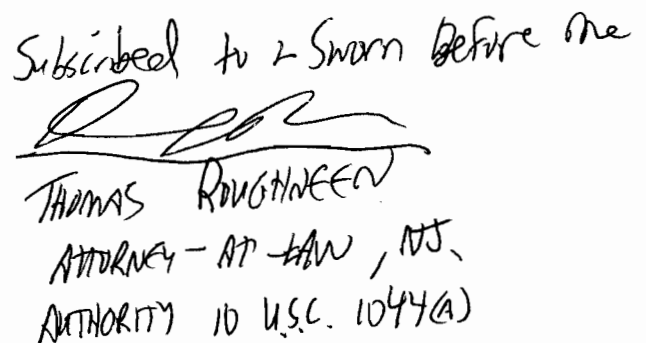 Subscribed to & Sworn Before me
THOMAS ROUGHNEEN
ATTORNEY-AT-LAW, NJ.
AUTHORITY 10 U.S.C. 1044(A)